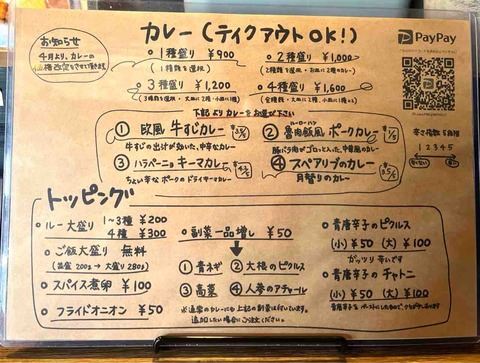 お知らせ
4月より、カレーの
価格改定をさせて頂きます
カレー(テイクアウトOK!)
PayPay
○1種盛り ¥900
(1種類を選択)
○2種盛り ¥1,000
(2種類を選択・お皿に2種のカレー)
○3種盛り ¥1,200
(3種類を選択・大皿に2種、小皿に1種)
○4種盛り ¥1,600
(全種類・大皿に2種、小皿に2種)
下記よりカレーをお選び下さい
① 欧風 牛すじカレー
牛すじの出汁が効いた、中辛なカレー
② 魯肉飯風 ポークカレー
ルーローハン
豚バラ肉がゴロッと入った、中華風のカレー
③ ハラペーニョキーマカレー
ちょい辛なポークのドライキーマカレー
④ スペアリブのカレー
月替りのカレー
辛さ指数5段階
1 2 3 4 5
トッピング
○ルー大盛り 1~3種 ¥200
4種 ¥300
○ご飯大盛り 無料
(普盛200g→大盛り280g)
○スパイス煮卵 ¥100
○フライドオニオン ¥50
○副菜一品増し ¥50
①青ネギ ②大根のピクルス
③高菜 ④人参のアチャール
※通常のカレーにも上記の副菜は付いています。
追加したい場合にご注文ください。
○青唐辛子のピクルス
(小)¥50 (大)¥100
ガッツリ辛いです
○青唐辛子のチャトニ
(小)¥50 (大)¥100